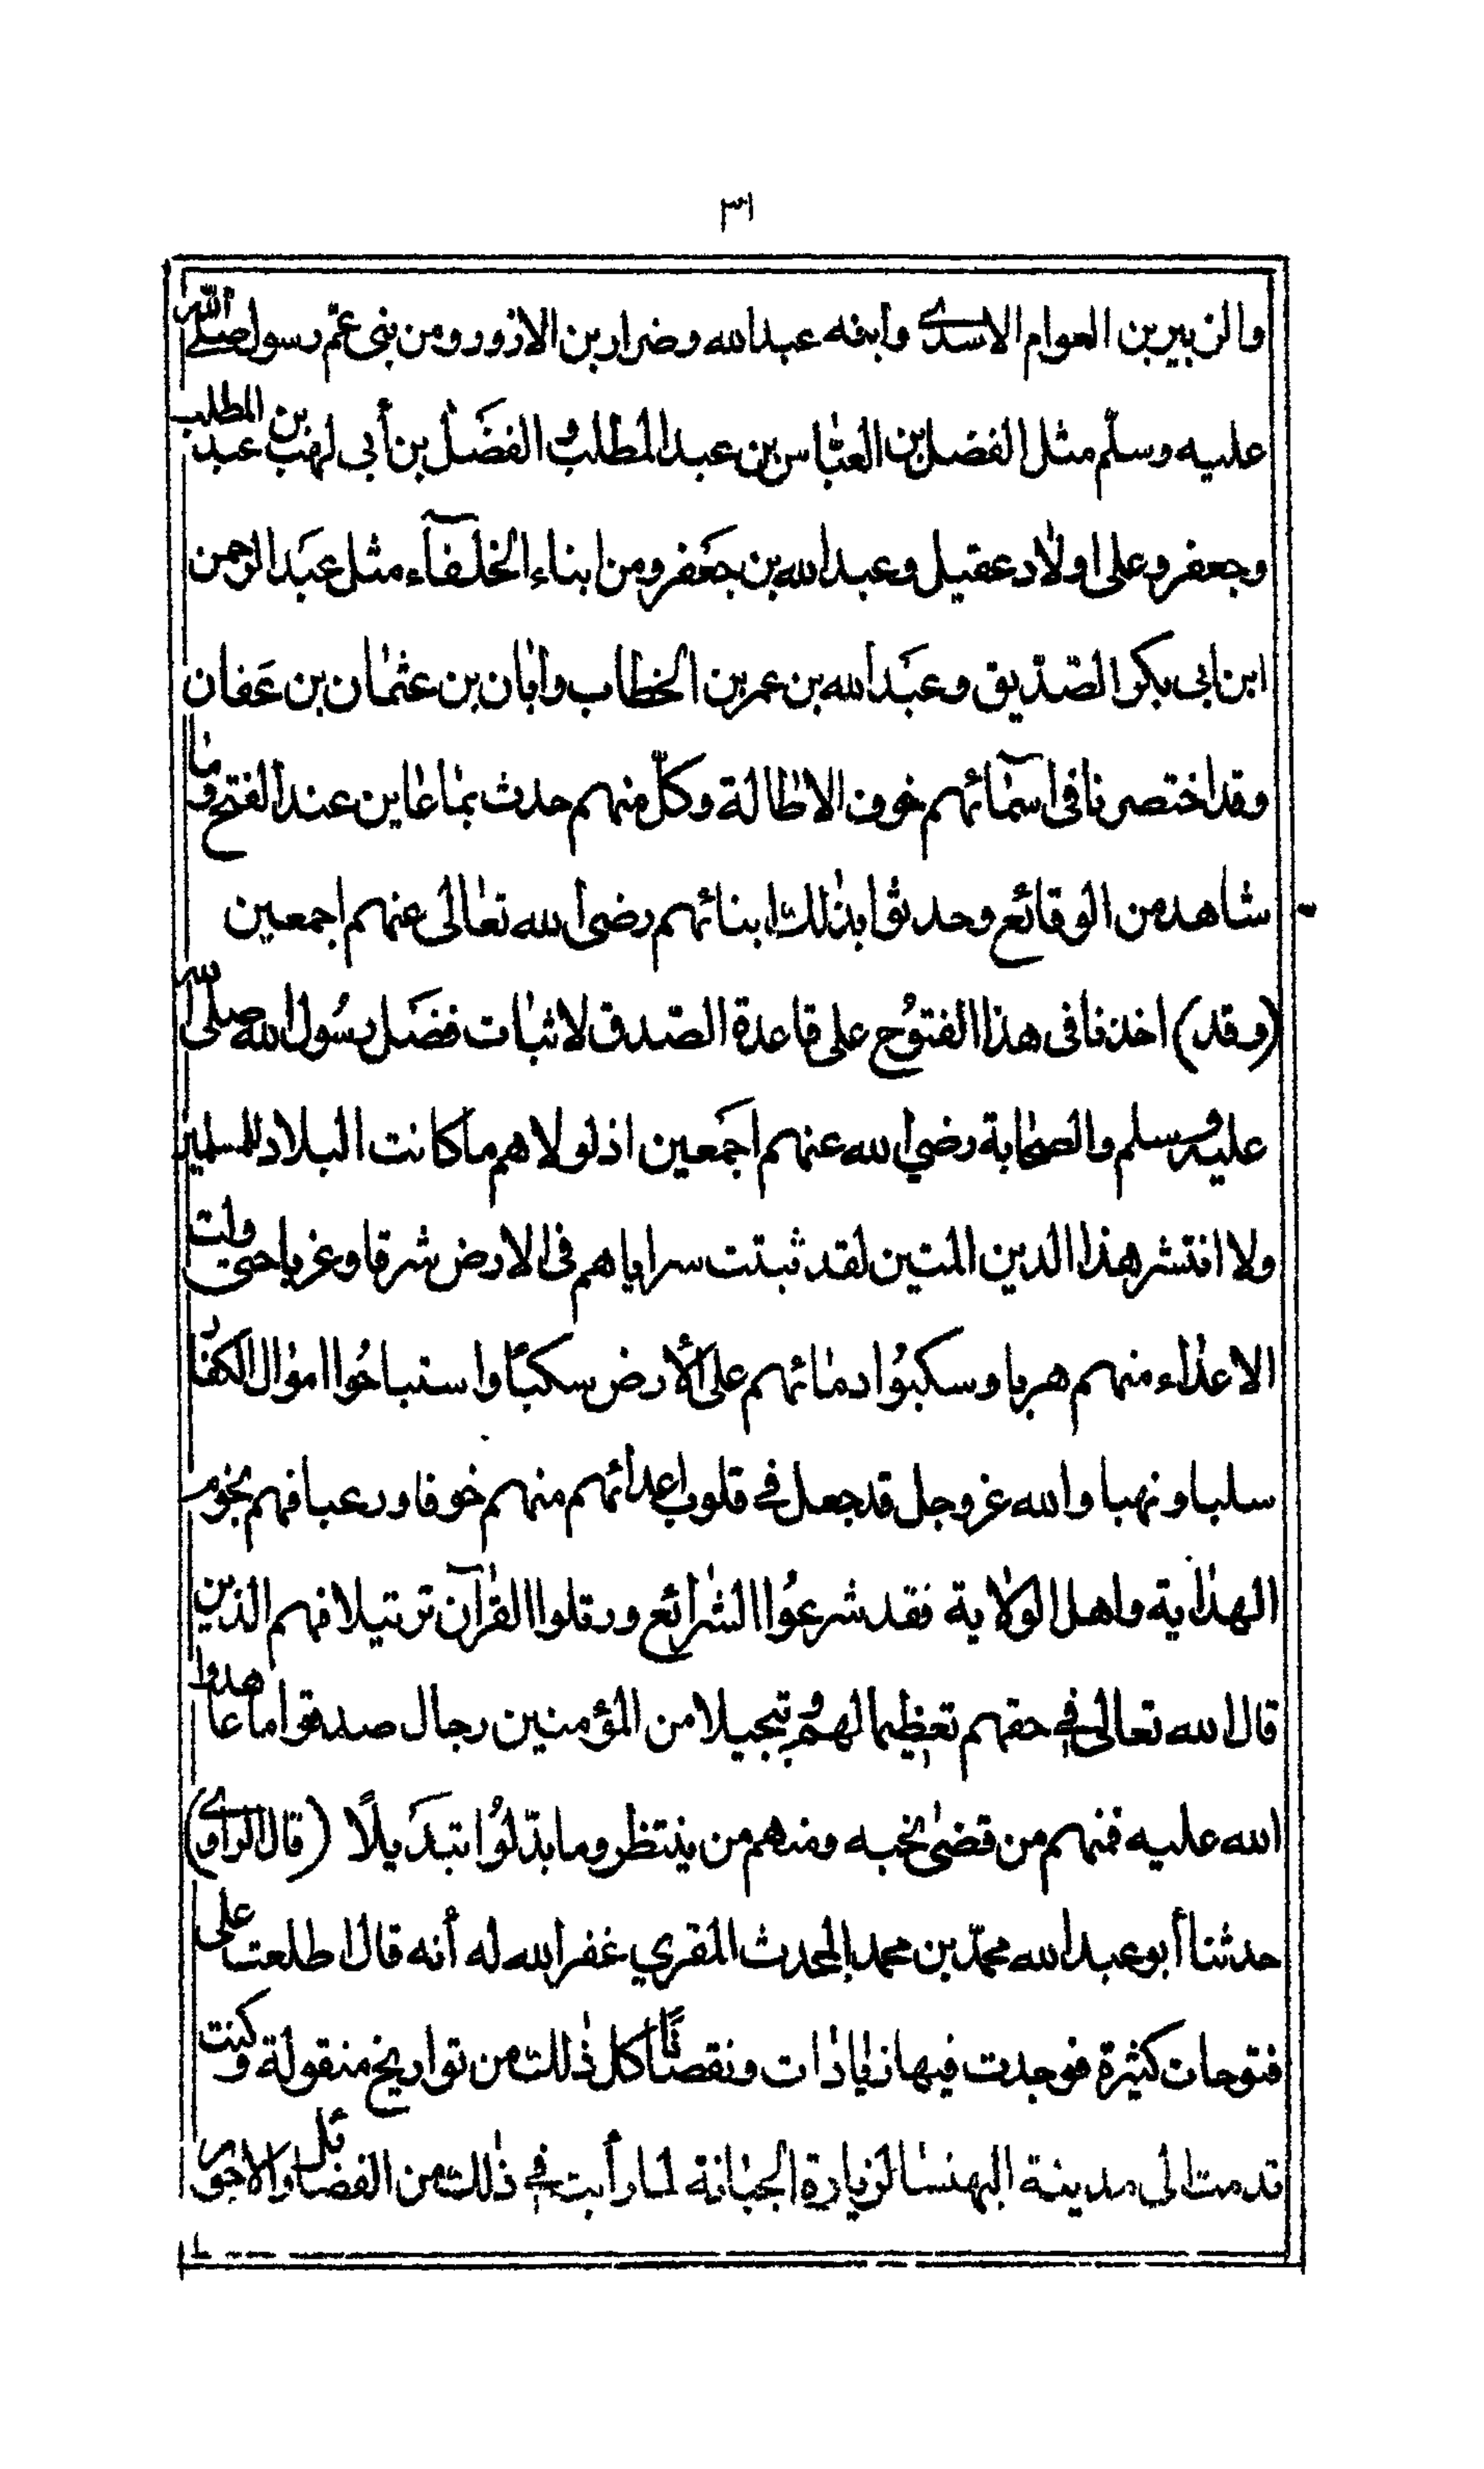 ٣١
والزبير بن العوام الاسدي وابنه عبد الله وضرار بن الازور ومن بنى عمّ رسول صلى الله
عليه وسلّم مثل الفضل بن العبّاس بن عبد المطلب والفضَل بن أبى لهب بن عبد المطلب
وجعفر وعلى اولاد عقيل وعبد الله بن جعَفر ومن ابناء الخلَفآء مثل عبَد الرحمن
ابن ابى بكر الصّدّيق وعبَد الله بن عمر بن الخطاب وابان بن عثمان بن عَفان
وقد اختصرنا فى اسمآئهم خوف الاطالة وكلّ منهم حدث بما عاين عند الفتح وما
شاهد من الوقائع وحدثوا بذلك ابنائهم رضى الله تعالى عنهم اجمعين
(وقد) اخذنا فى هذا الفتوُح على قاعدة الصّدق لاثبات فضَل رسُول الله صلى الله
عليه وسلم والصحابة رضي الله عنهم اجمَعين اذ لولاهم ما كانت البلاد للمسلمين
ولا انتشر هذا الدين المتين لقد ثبتت سراياهم فى الارض شرقا وغربا حتى ولت
الاعدٰاء منهم هربا وسكبوُا دمائهم على الأرض سكبًا واستباحُوا اموال الكفار
سلبا ونهبا والله عز وجل قد جعل في قلوب اعدائهم منهم خوفا ورعبا فهم نجوم
الهداية واهل الولاية فقد شرعوُا الشرائع ورتلوا القرآن ترتيلا فهم الذين
قال الله تعالى في حقهم تعظيما لهم وتبجيلا من المؤمنين رجال صدقوا ما عاهدوا
الله عليه فمنهم من قضىٰ نحبه ومنهم من ينتظر وما بدّلوُا تبدَيلًا (قال الراوي)
حدثنا أبو عبد الله محمّد بن محمد المحدث المقري غفر الله له أنه قال اطلعت على
فتوحات كثيرة فوجدت فيها زيادات ونقصًانًا كل ذٰلك من تواريخ منقولة وكنت
قدمت الى مدينة البهنسا لزيارة الجبانة لما رأيت في ذٰلك من الفضائل والاجور